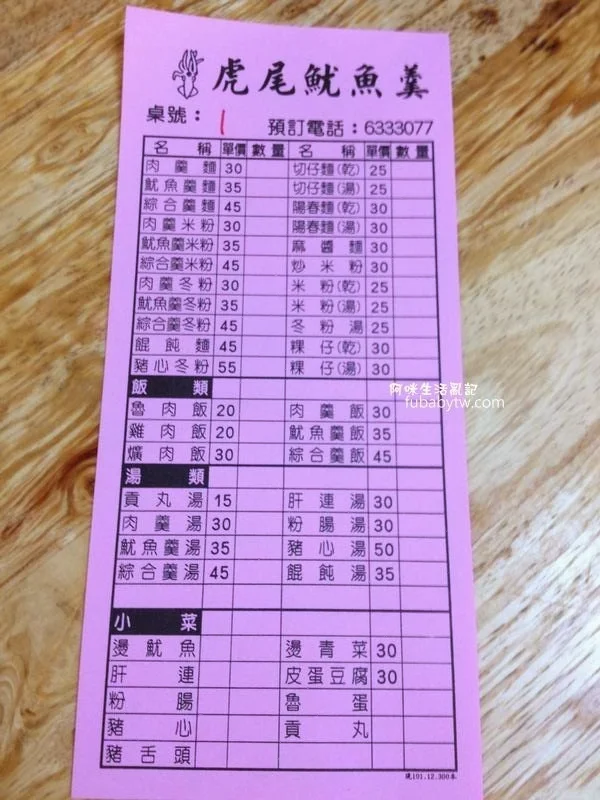 虎尾魷魚羹
桌號：1 預訂電話：6333077
名稱 單價 數量 名稱 單價 數量
肉羹麵 30 切仔麵(乾) 25
魷魚羹麵 35 切仔麵(湯) 25
綜合羹麵 45 陽春麵(乾) 30
肉羹米粉 30 陽春麵(湯) 30
魷魚羹米粉 35 麻醬麵 30
綜合羹米粉 45 炒米粉 30
肉羹冬粉 30 米粉(乾) 25
魷魚羹冬粉 35 米粉(湯) 25
綜合羹冬粉 45 冬粉湯 25
餛飩麵 45 粿仔(乾) 30
豬心冬粉 55 粿仔(湯) 30
飯類
阿咪生活亂記
fubabytw.com
魯肉飯 20 肉羹飯 30
雞肉飯 20 魷魚羹飯 35
爌肉飯 30 綜合羹飯 45
湯類
貢丸湯 15 肝連湯 30
肉羹湯 30 粉腸湯 30
魷魚羹湯 35 豬心湯 50
綜合羹湯 45 餛飩湯 35
小菜
燙魷魚 燙青菜 30
肝連 皮蛋豆腐 30
粉腸 魯蛋
豬心 貢丸
豬舌頭
101.12.300本